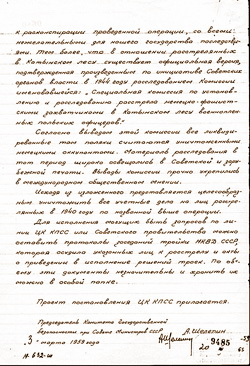 к расконспирации проведенной операции, со всеми
нежелательными для нашего государства последствиями.
Тем более, что в отношении расстрелянных в
Катынском лесу существует официальная версия,
подтвержденная произведенным по инициативе Советских
органов власти в 1944 году расследованием Комиссии
именовавшейся: "Специальная комиссия по установ-
лению и расследованию расстрела немецко-фашист-
скими захватчиками в Катынском лесу военноплен-
ных польских офицеров".
Согласно выводам этой комиссии все ликвиди-
рованные там поляки считаются уничтоженными
немецкими оккупантами. Материалы расследования в
тот период широко освещались в Советской и зару-
бежной печати. Выводы комиссии прочно укрепились
в международном общественном мнении.
Исходя из изложенного представляется целесооб-
разным уничтожить все учетные дела на лиц расстре-
лянных в 1940 году по названной выше операции.
Для исполнения могущих быть запросов по ли-
нии ЦК КПСС или Советского правительства можно
оставить протоколы заседаний тройки НКВД СССР,
которая осудила указанных лиц к расстрелу и акты
о приведении в исполнение решений троек. По объ-
ему эти документы незначительны и хранить их
можно в особой папке.
Проект постановления ЦК КПСС прилагается.
Председатель Комитета Государственной
безопасности при Совете Министров СССР
А.Шелепин
3 марта 1959 года
N-632-ш
9485
20